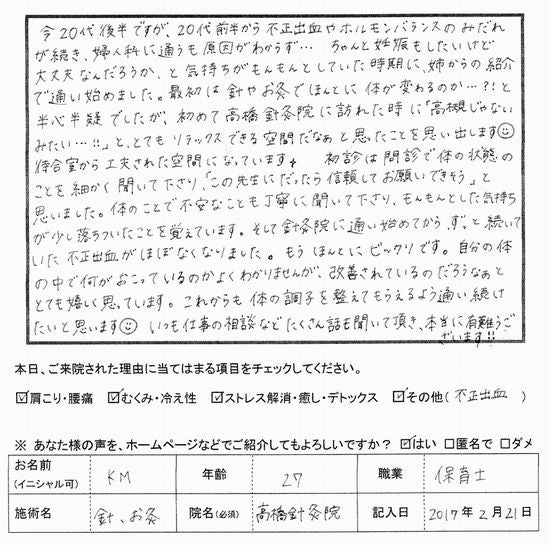 今20代後半ですが、20代前半から不正出血やホルモンバランスのみだれ
が続き、婦人科に通うも原因がわからず… ちゃんと妊娠もしたいけど
大丈夫なんだろうか、と気持ちがもんもんとしていた時期に、姉からの紹介
で通い始めました。最初は針やお灸でほんとに体が変わるのか…?!と
半心半疑でしたが、初めて高橋針灸院に訪れた時に「高槻じゃない
みたい…!!」と、とてもリラックスできる空間だなぁと思ったことを思い出します☺
待合室から工夫された空間になっています♪ 初診は問診で体の状態の
ことを細かく聞いて下さり、「この先生にだったら信頼してお願いできそう」と
思いました。体のことで不安なことも丁寧に聞いて下さり、もんもんとした気持ち
が少し落ちついたことを覚えています。そして針灸院に通い始めてから、ずっと続いて
いた不正出血がほぼなくなりました。もうほんとにビックリです。自分の体
の中で何がおこっているのかよくわかりませんが、改善されているのだろうなぁと
とても嬉しく思っています。これからも体の調子を整えてもらえるよう通い続け
たいと思います☺ いつも仕事の相談などたくさん話も聞いて頂き、本当に有難うご
ざいます!!
本日、ご来院された理由に当てはまる項目をチェックしてください。
☑肩こり・腰痛 ☑むくみ・冷え性 ☑ストレス解消・癒し・デトックス ☑その他( 不正出血 )
※ あなた様の声を、ホームページなどでご紹介してもよろしいですか? ☑はい □匿名で □ダメ
お名前(イニシャル可) KM 年齢 27 職業 保育士
施術名 針、お灸 院名(必須) 高橋針灸院 記入日 2017年2月21日